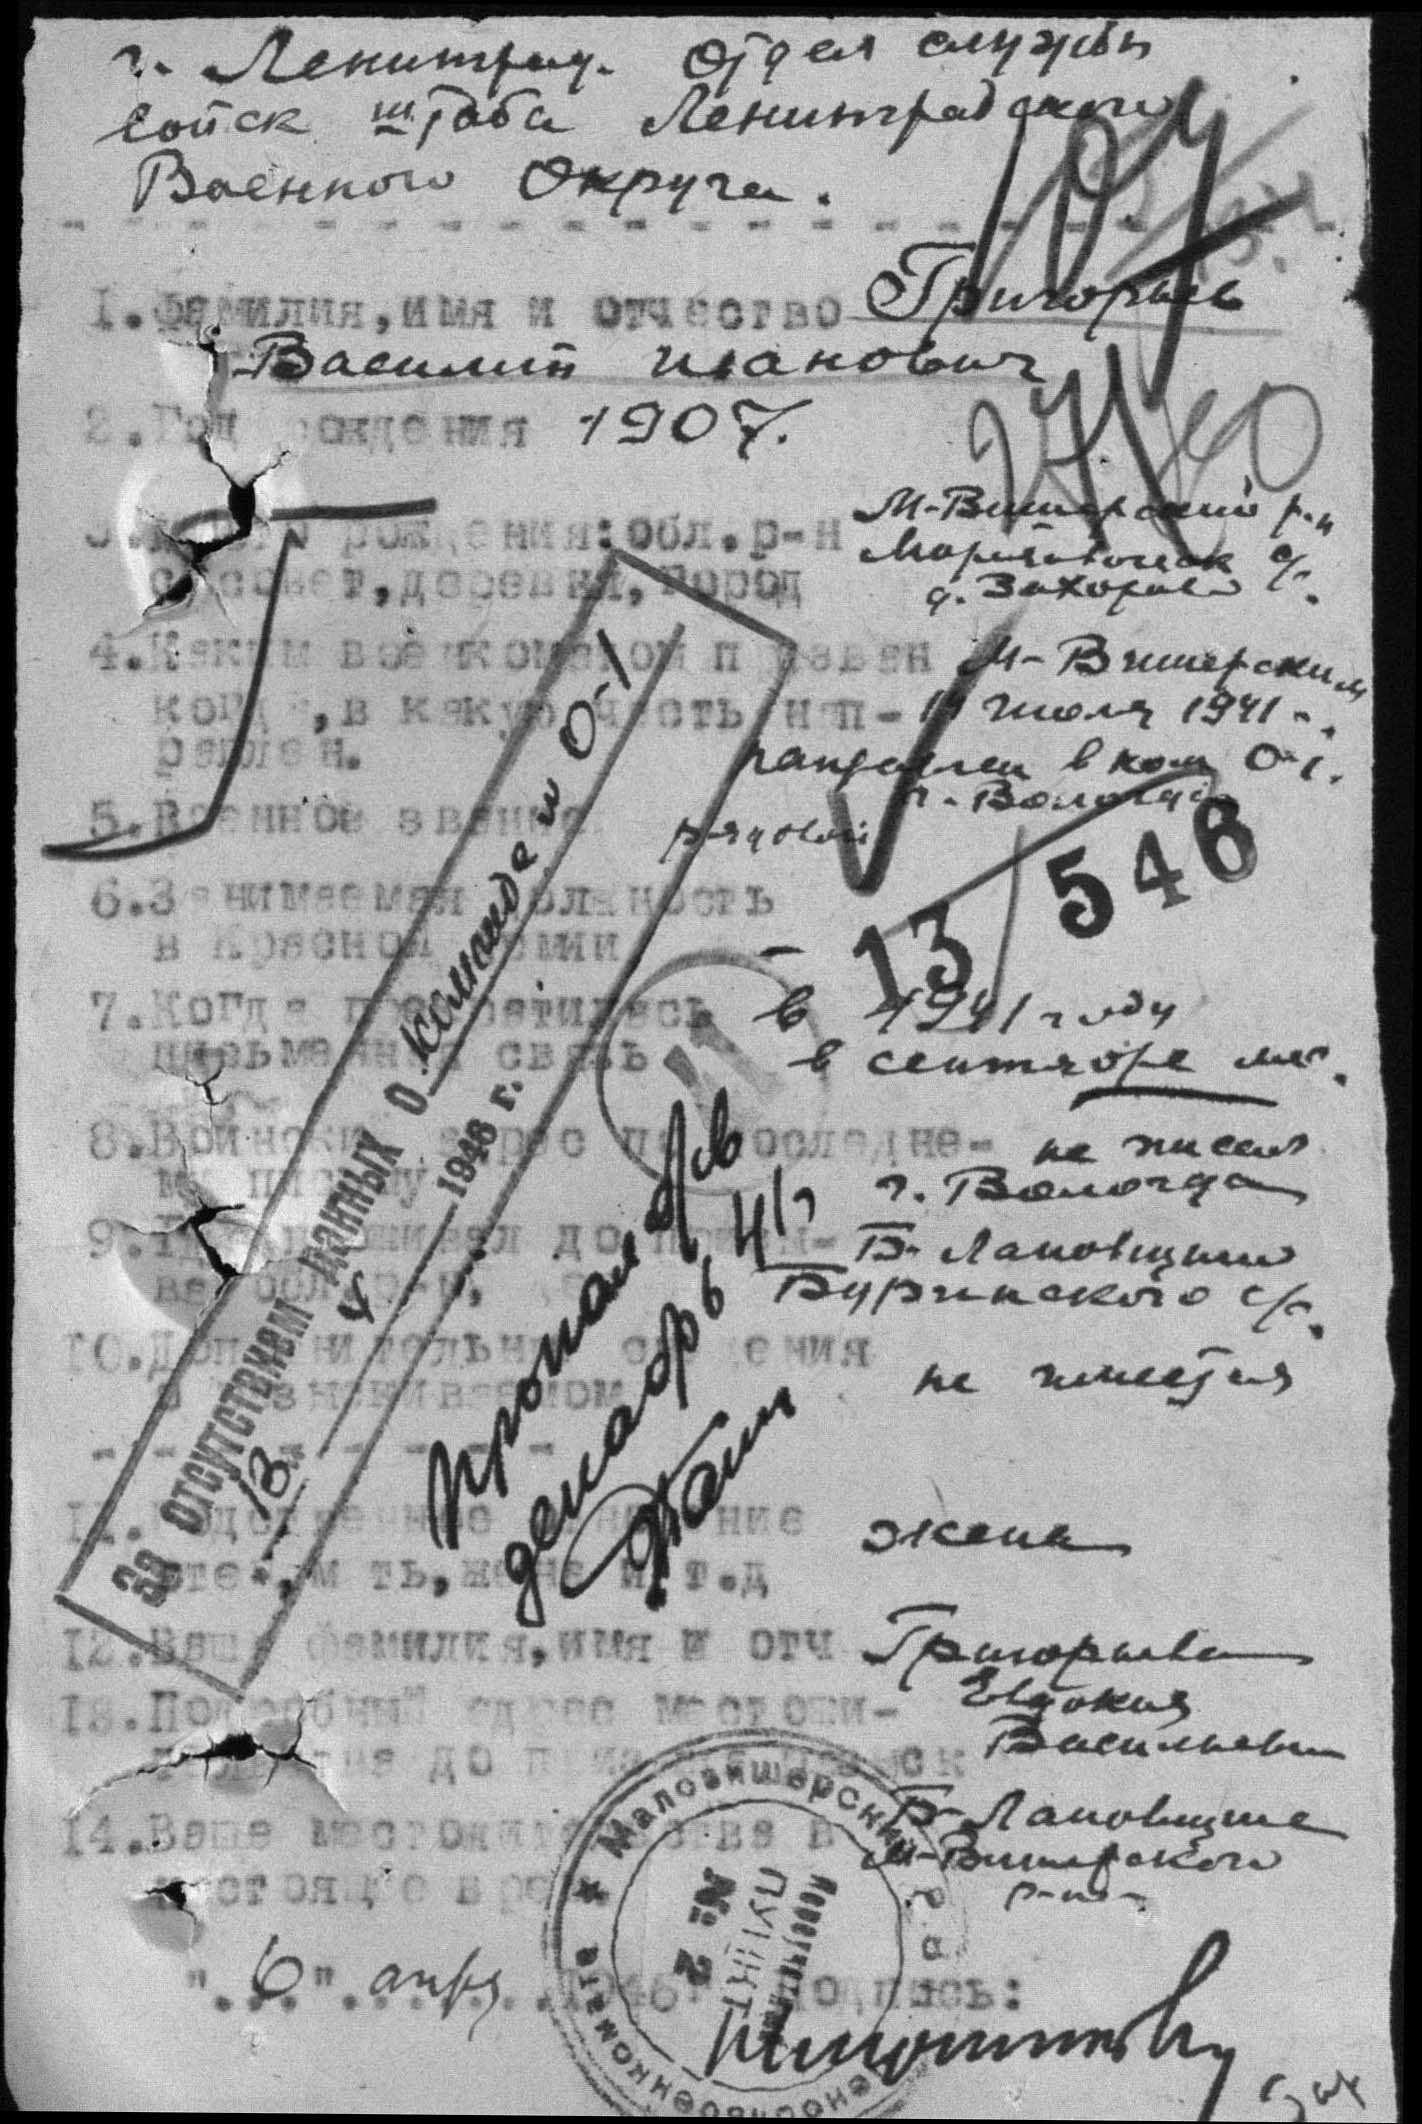 г. Ленинград. Отдел службы
войск штаба Ленинградского
Военного Округа.
1. Фамилия, имя и отчество Григорьев
Василий Иванович
2. Год рождения 1907.
3. Место рождения: обл. р-н М-Вишерский р-н
с/совет, деревня, город
д.
4. Каким военкоматом призван М-Вишерским
когда, в какую часть нап- июля 1941 г.
равлен. направлен в ком 0-1.
г. Вологда
5. Военное звание рядовой
13/546
6. Занимаемая должность
в Красной Армии -
7. Когда прекратилась в 1941 году
письменная связь в сентябре м-с.
11
8. Воинский адрес по последне- не писал
му письму г. Вологда
9. Проживал до
Бургинского с/с.
10. Дополнительные сведения
о разыскиваемом не имеется
За отсутствием данных о команде и 0-1
13 4 1946 г.
Пропал б/в
декабрь 41 г
11. Родственное отношение жена
отец, мать, жена и т.д
12. Ваша фамилия, имя и отч Григорьева
Евдокия
Васильевна
13. Подробный адрес местожи-
тельства до призыва
14. Ваше местожительства в
настоящее время М-Вишерского
р-на
"6" апря 1946 г. Подпись:
★ Маловишерский
№ 2
ПУНКТ